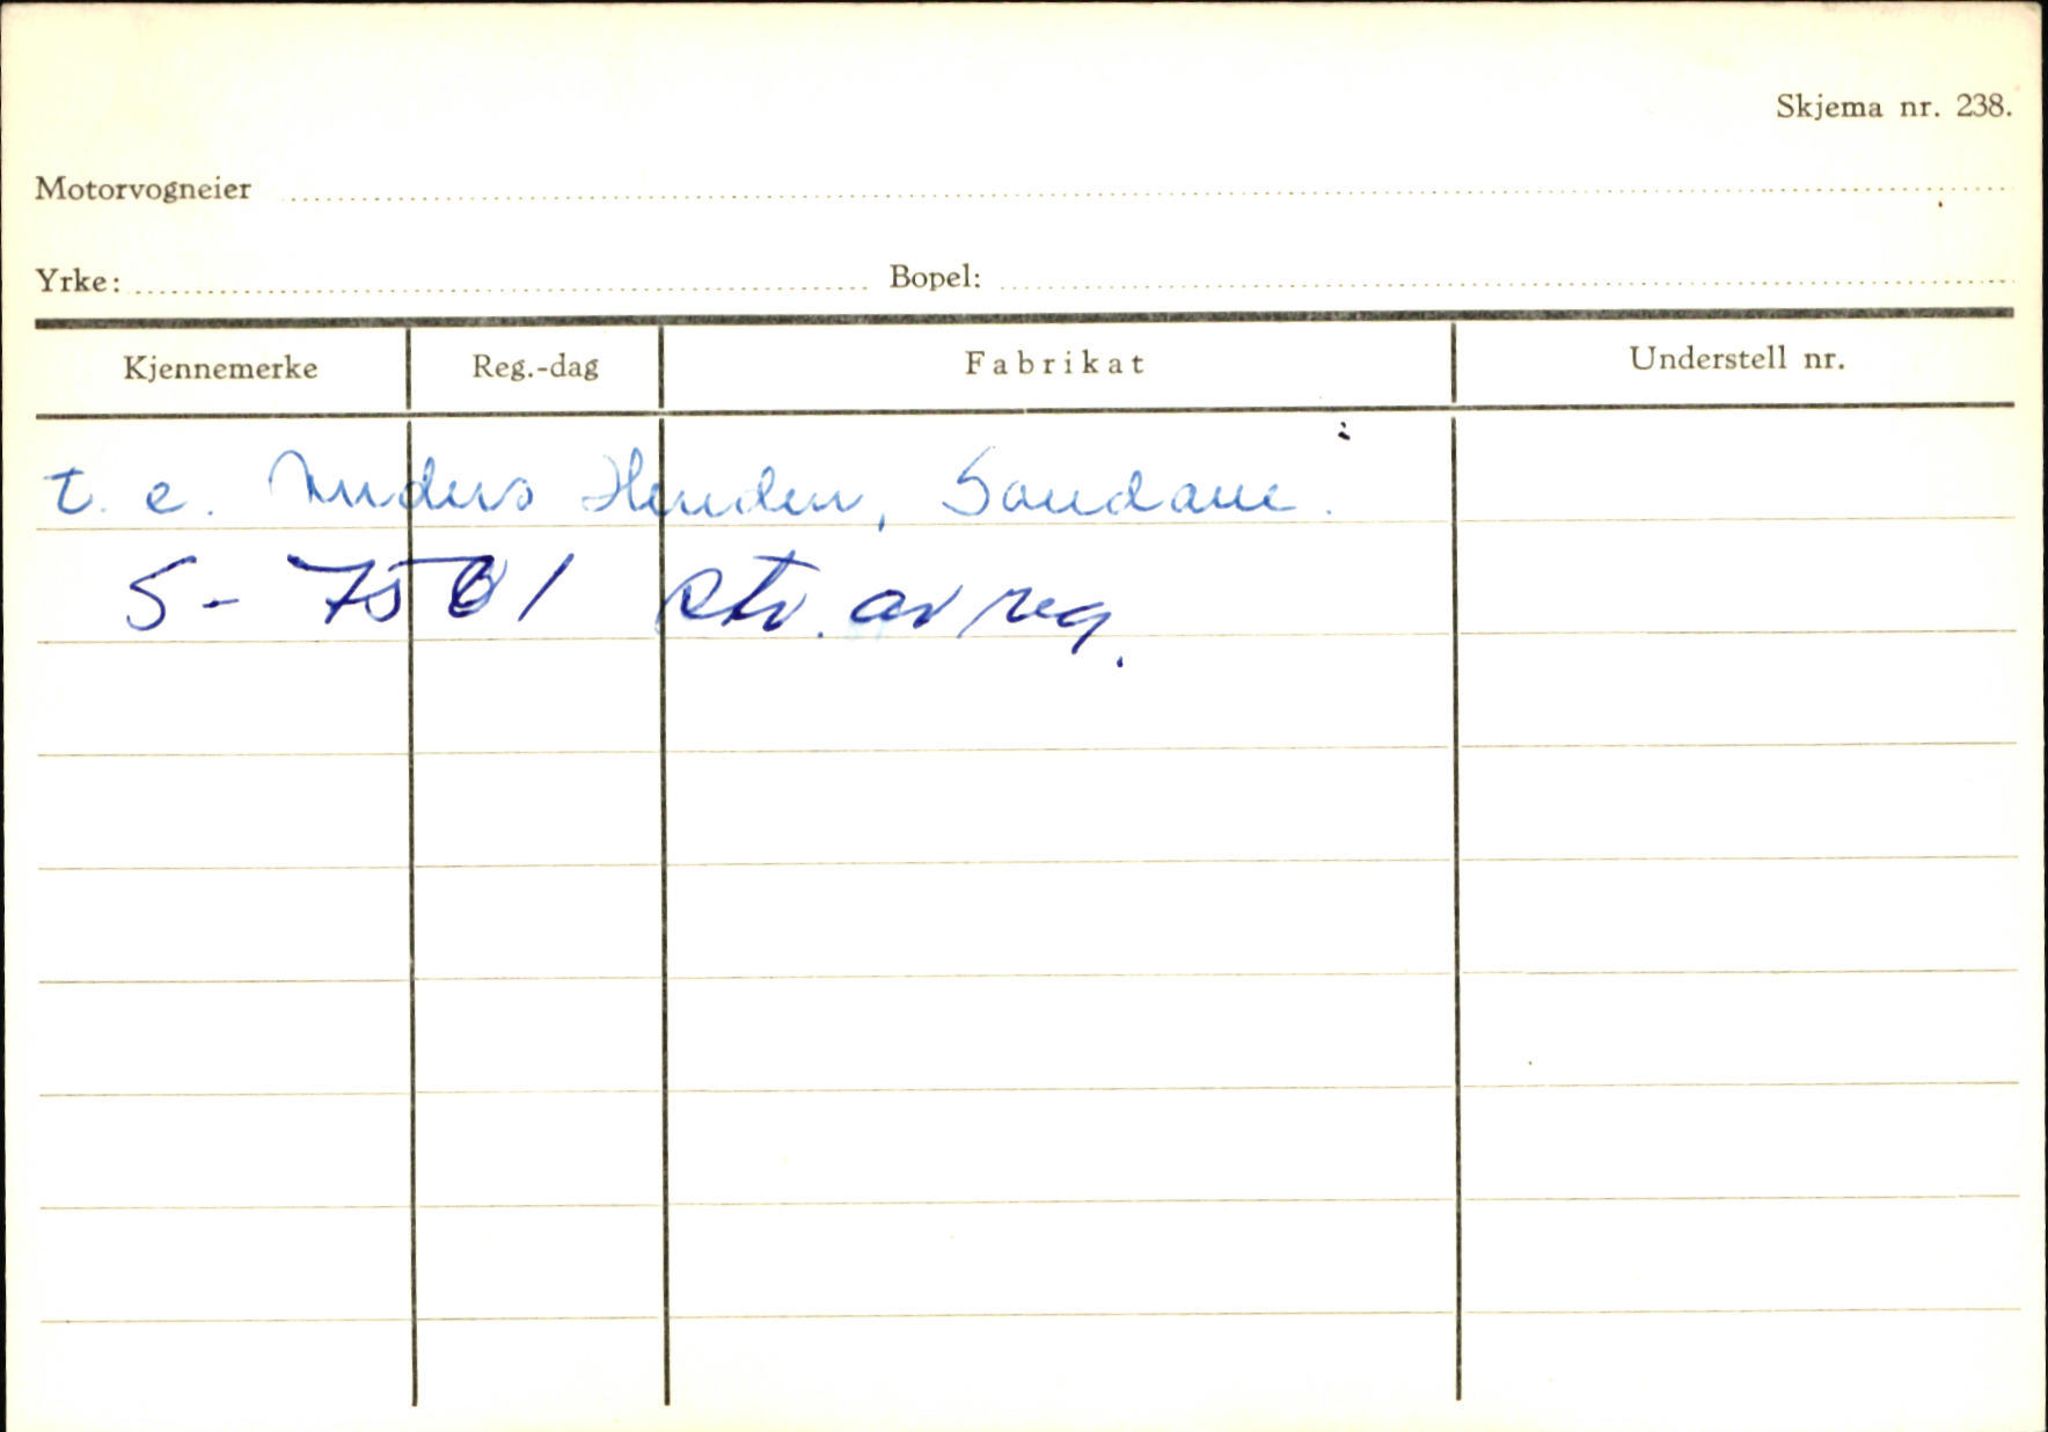 Skjema nr. 238.
Motorvogneier
Yrke: Bopel:
Kjennemerke Reg.-dag Fabrikat Understell nr.
t. e. Anders Henden, Sandane.
S- 7501 av reg.